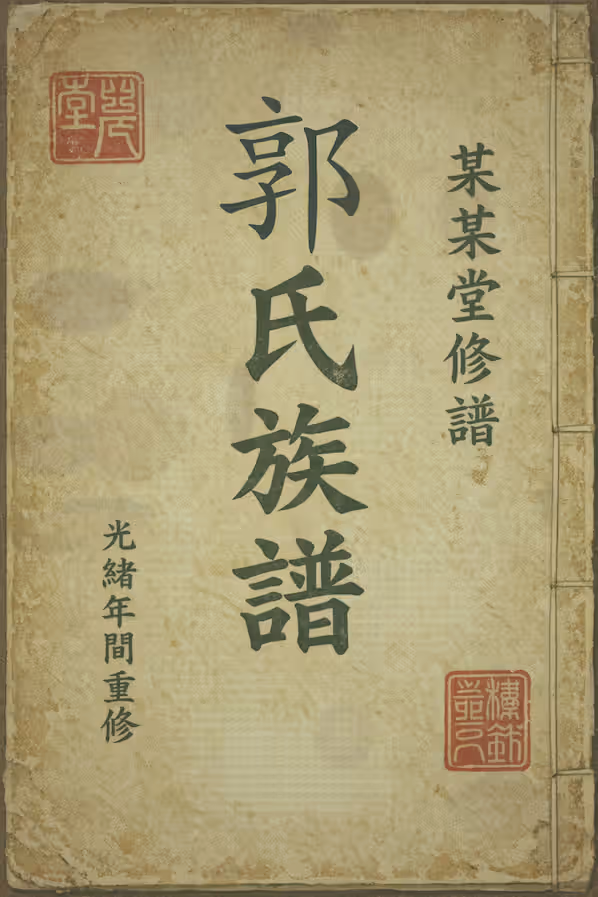 某某堂修譜
郭氏族譜
光緒年間重修